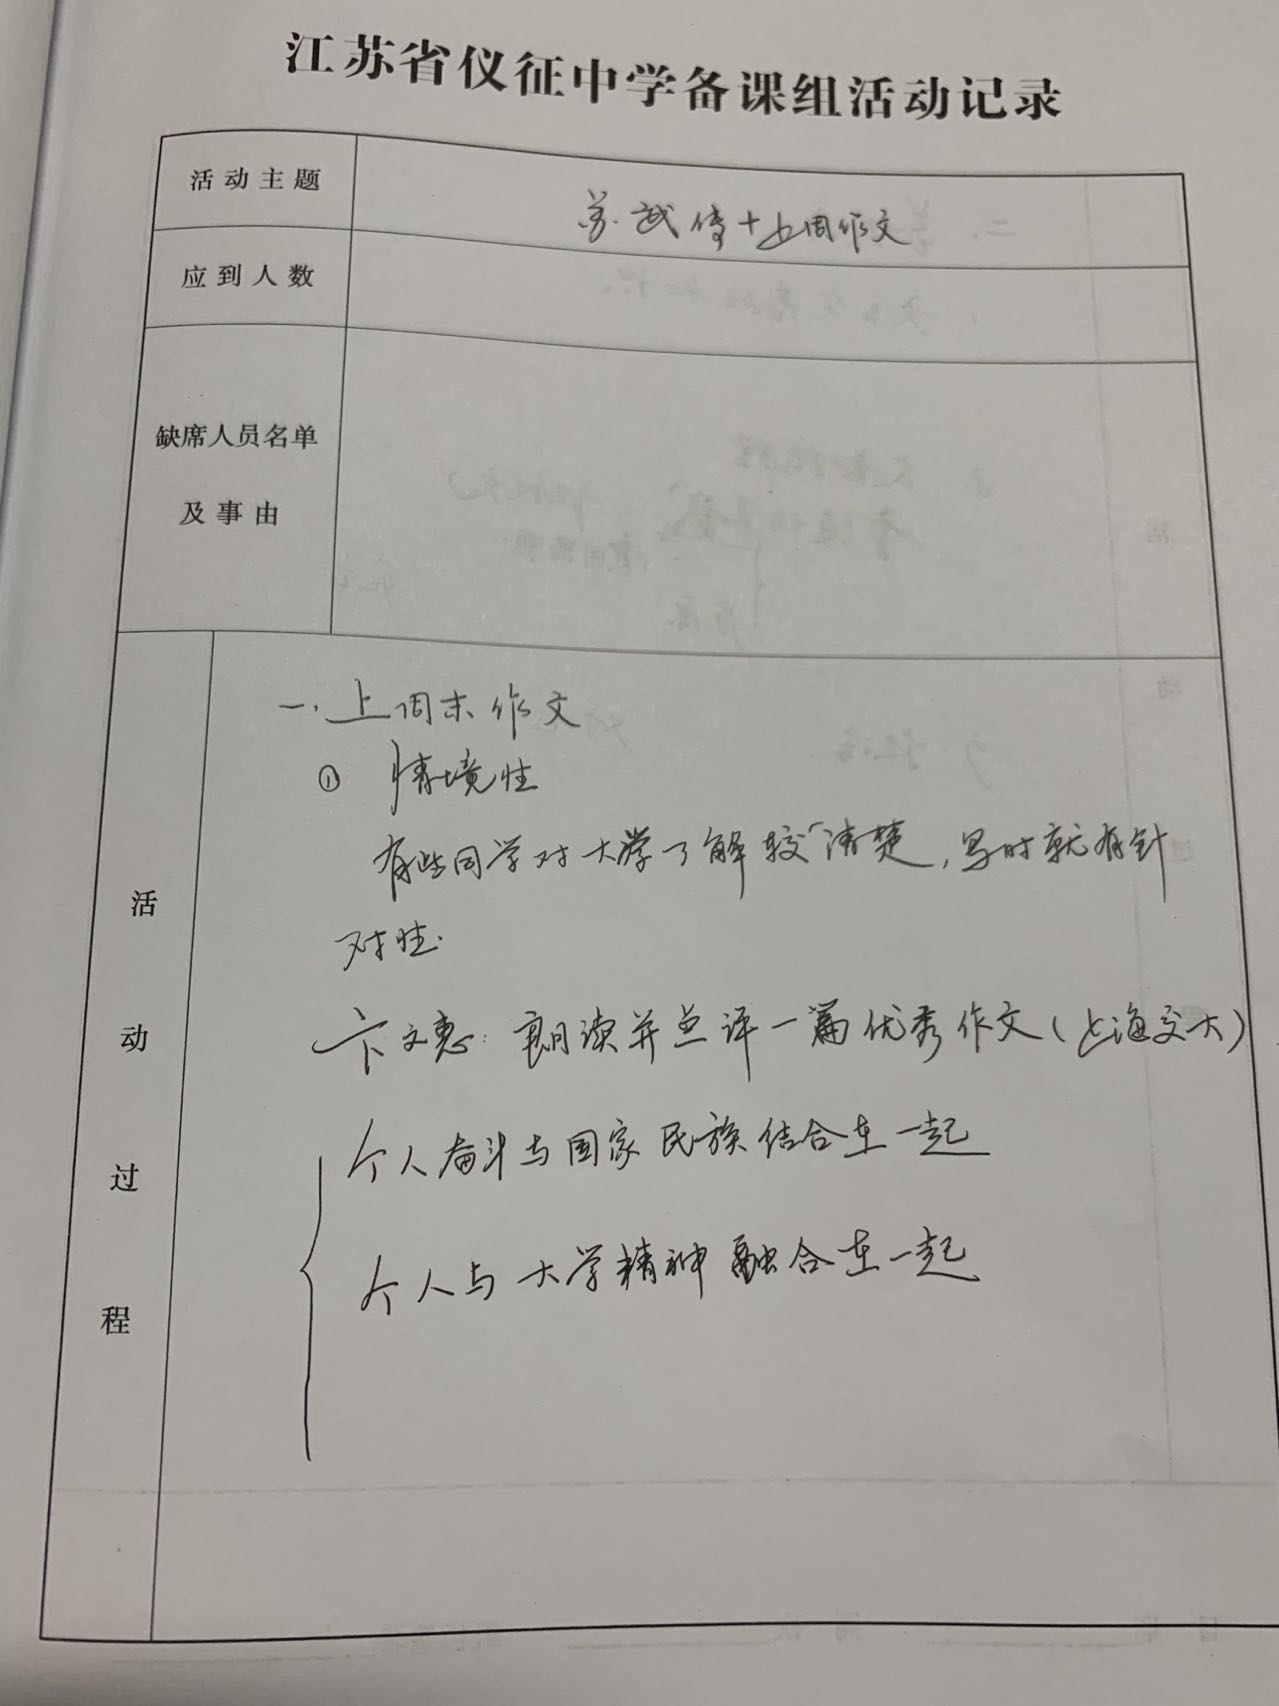 江苏省仪征中学备课组活动记录
活动主题
苏武传+上周作文
应到人数
缺席人员名单
及事由
活动过程
一、上周末作文
① 情境性
有些同学对大学了解较清楚，写时就有针
对性.
卞文惠：朗读并点评一篇优秀作文（上海交大）
个人奋斗与国家民族结合在一起
个人与大学精神融合在一起